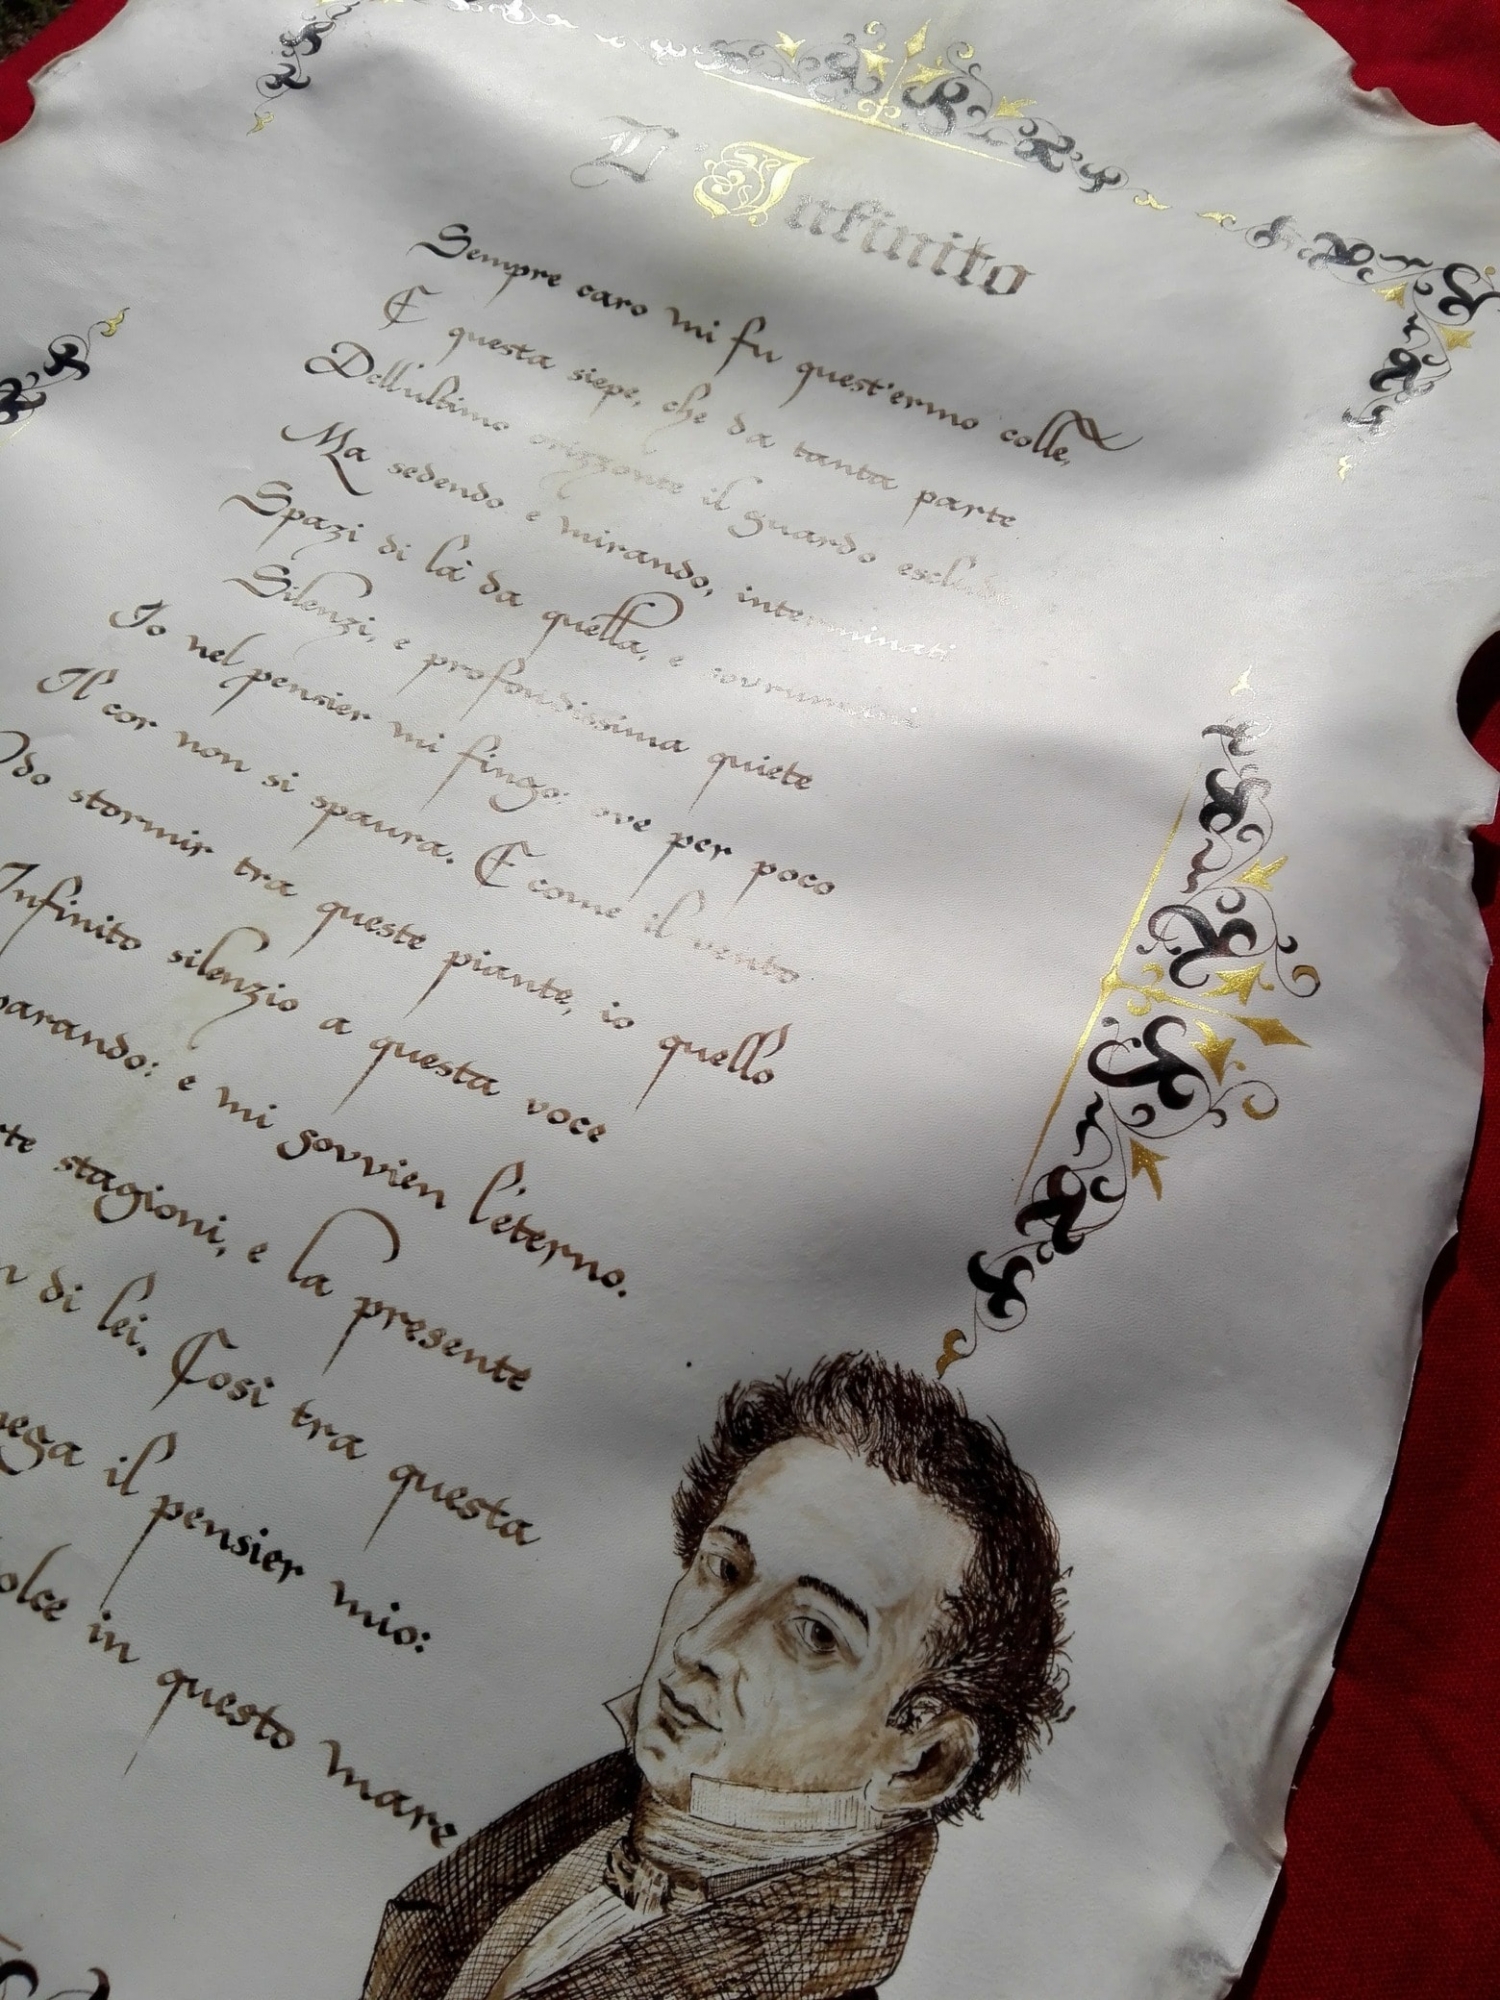 L'Infinito
Sempre caro mi fu quest'ermo colle,
E questa siepe, che da tanta parte
Dell'ultimo orizzonte il guardo esclude.
Ma sedendo e mirando, interminati
Spazi di là da quella, e sovrumani
Silenzi, e profondissima quiete
Io nel pensier mi fingo; ove per poco
Il cor non si spaura. E come il vento
Odo stormir tra queste piante, io quello
Infinito silenzio a questa voce
parando: e mi sovvien l'eterno.
te stagioni, e la presente
n di lei. Così tra questa
ega il pensier mio:
olce in questo mare